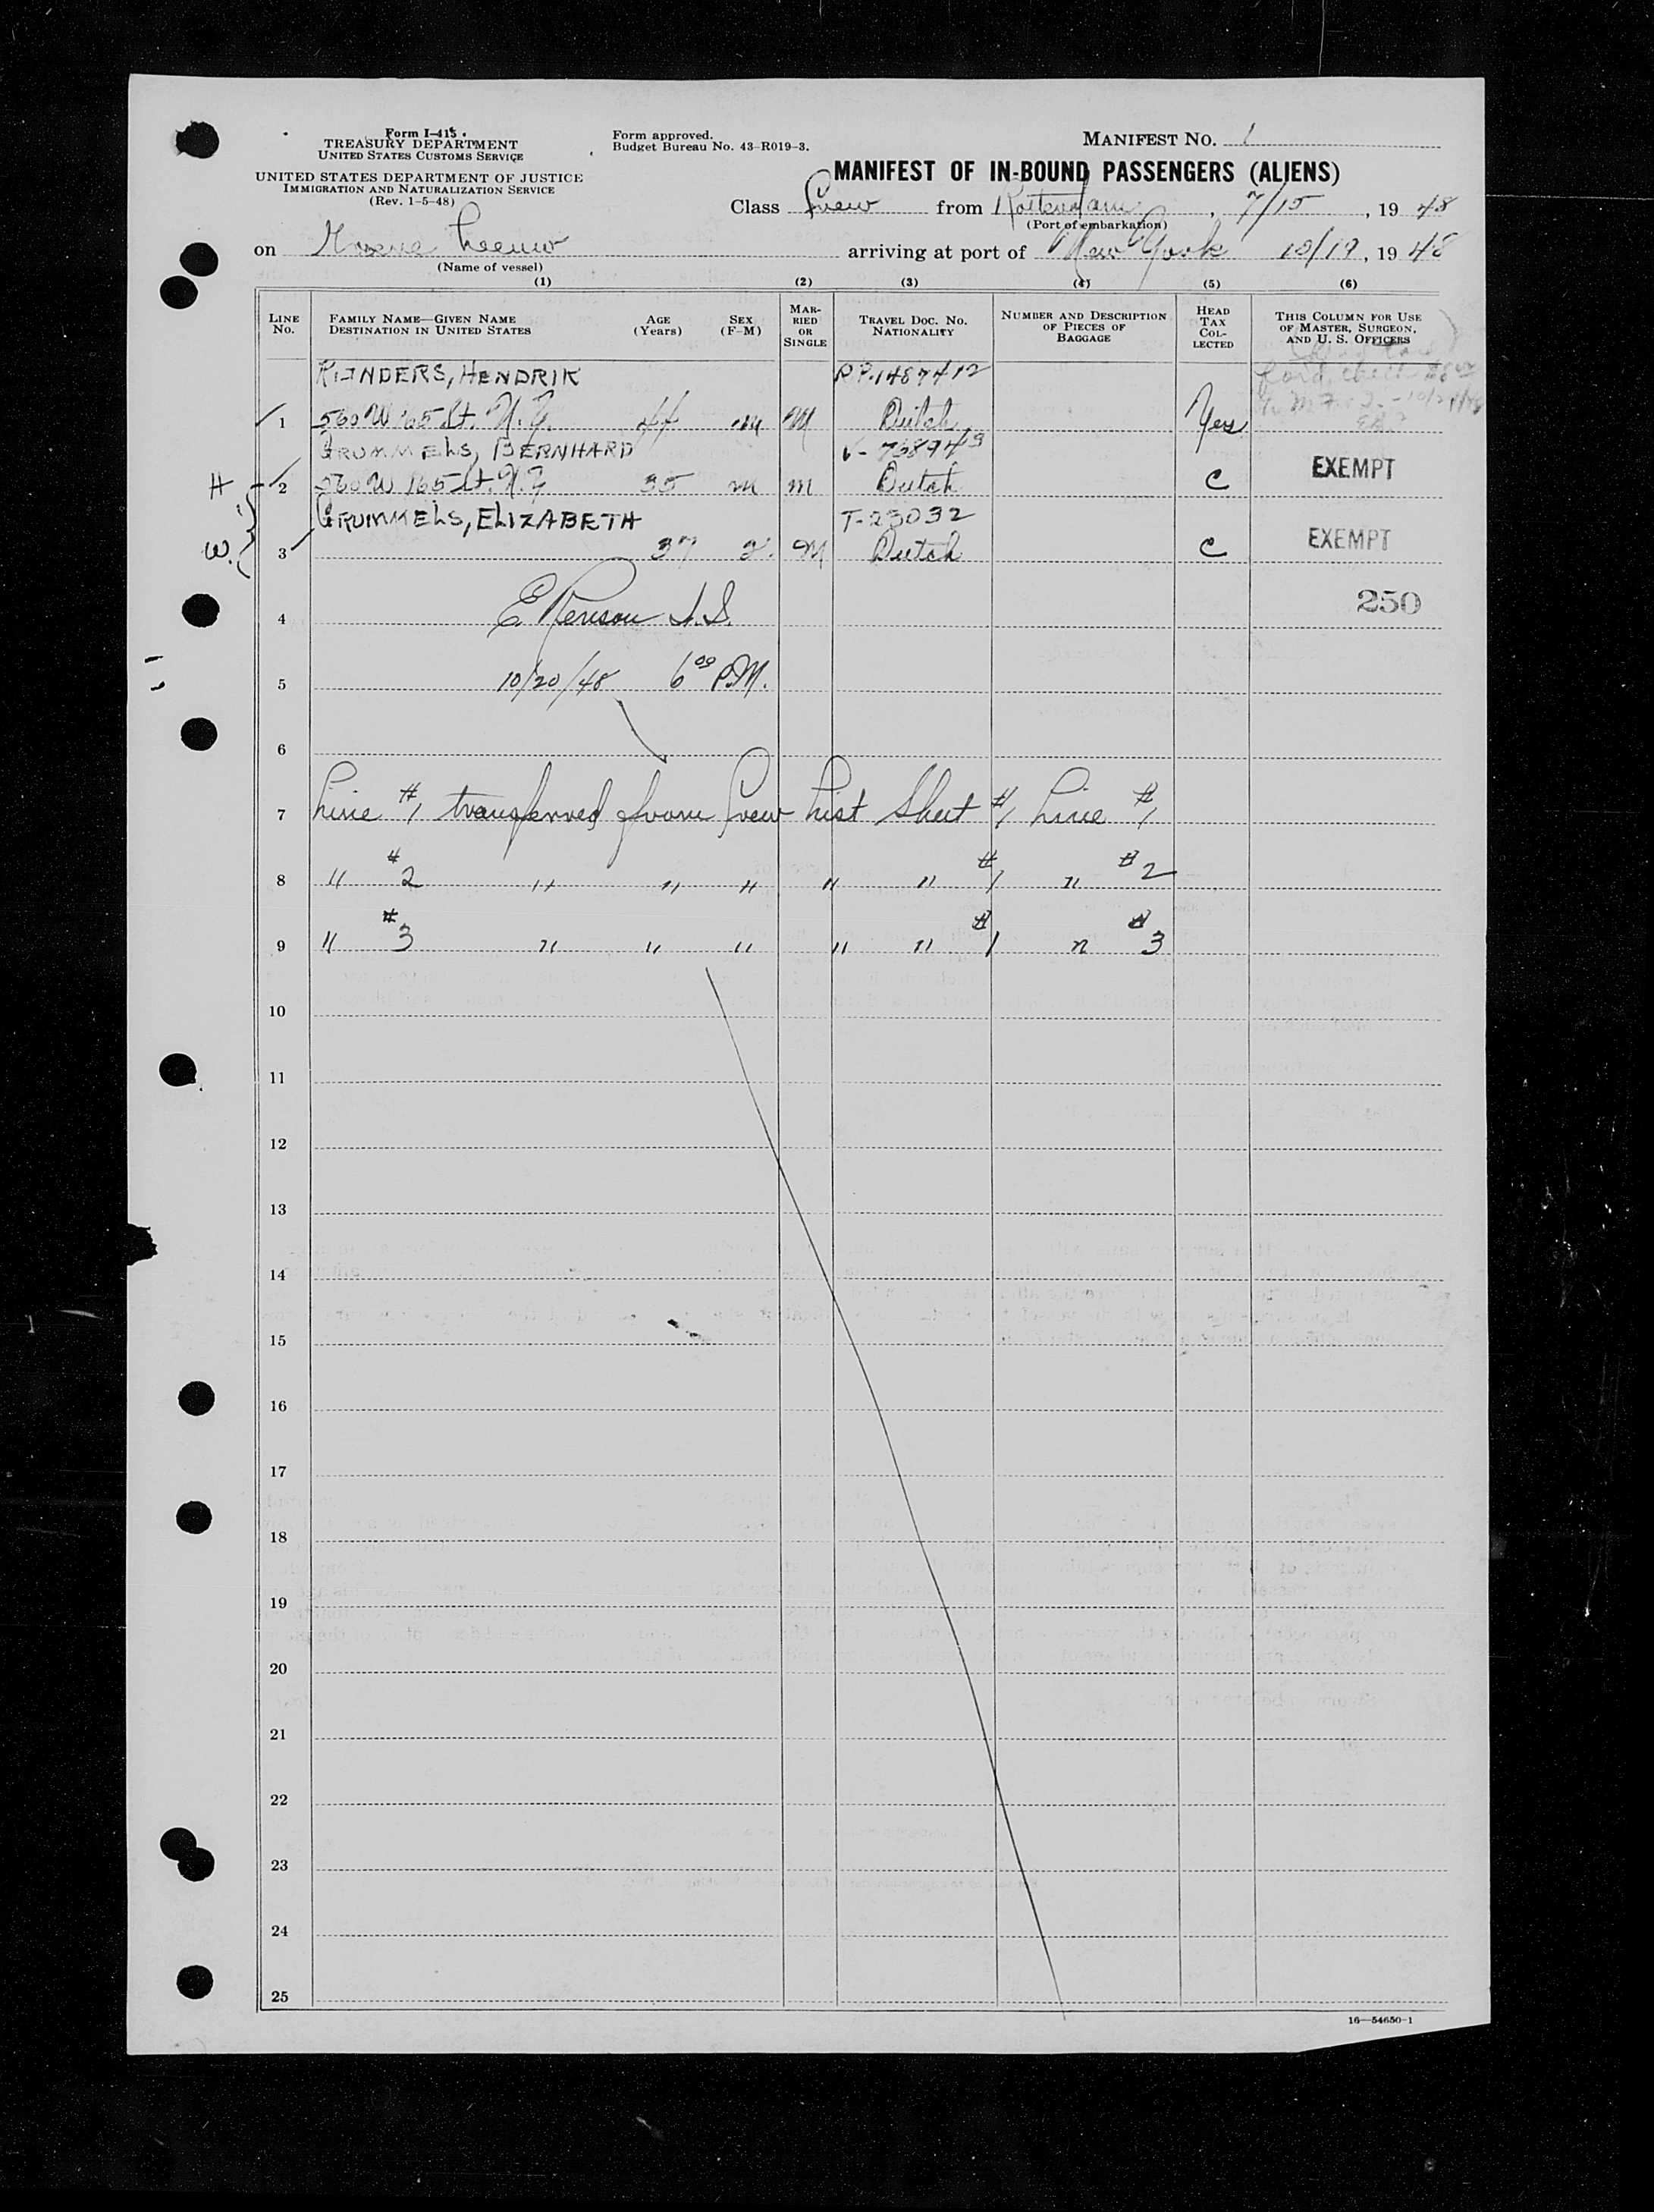 Form I-415
TREASURY DEPARTMENT
UNITED STATES CUSTOMS SERVICE
UNITED STATES DEPARTMENT OF JUSTICE
IMMIGRATION AND NATURALIZATION SERVICE
(Rev. 1-5-48)
Form approved.
Budget Bureau No. 43-R019-3.
MANIFEST NO. 1
MANIFEST OF IN-BOUND PASSENGERS (ALIENS)
Class Crew from Rotterdam, 7/15, 1948
(Port of embarkation)
on Groene Leeuw arriving at port of New York 10/19, 1948
(Name of vessel)
(1) (2) (3) (4) (5) (6)
LINE No. FAMILY NAME—GIVEN NAME DESTINATION IN UNITED STATES AGE (Years) SEX (F-M) MARRIED OR SINGLE TRAVEL DOC. NO. NATIONALITY NUMBER AND DESCRIPTION OF PIECES OF BAGGAGE HEAD TAX COLLECTED THIS COLUMN FOR USE OF MASTER, SURGEON, AND U. S. OFFICERS
RIJNDERS, HENDRIK PP.1487412
1 560 W 165 St. N.Y. 44 M M Dutch Yes
GRUMMELS, BERNHARD V-768943
H 2 560 W 165 St. N.Y 35 M M Dutch C EXEMPT
GRUMMELS, ELIZABETH T-23032
W. 3 37 M Dutch C EXEMPT
4 E. Kenison I.S. 250
5 10/20/48 6 00 P.M.
6
7 Line #1 transferred from Crew List Sheet #1 Line #1
8 " #2 " " " " " #1 " #2
9 " #3 " " " " " #1 " #3
10
11
12
13
14
15
16
17
18
19
20
21
22
23
24
25
16—54650-1